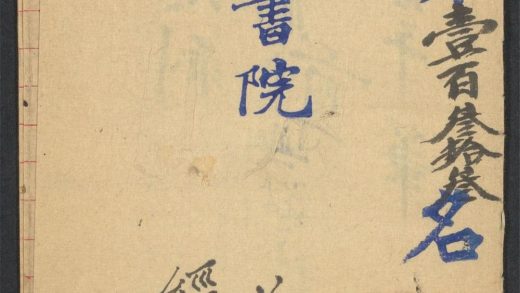 壹百叁拾叁名
書院
經